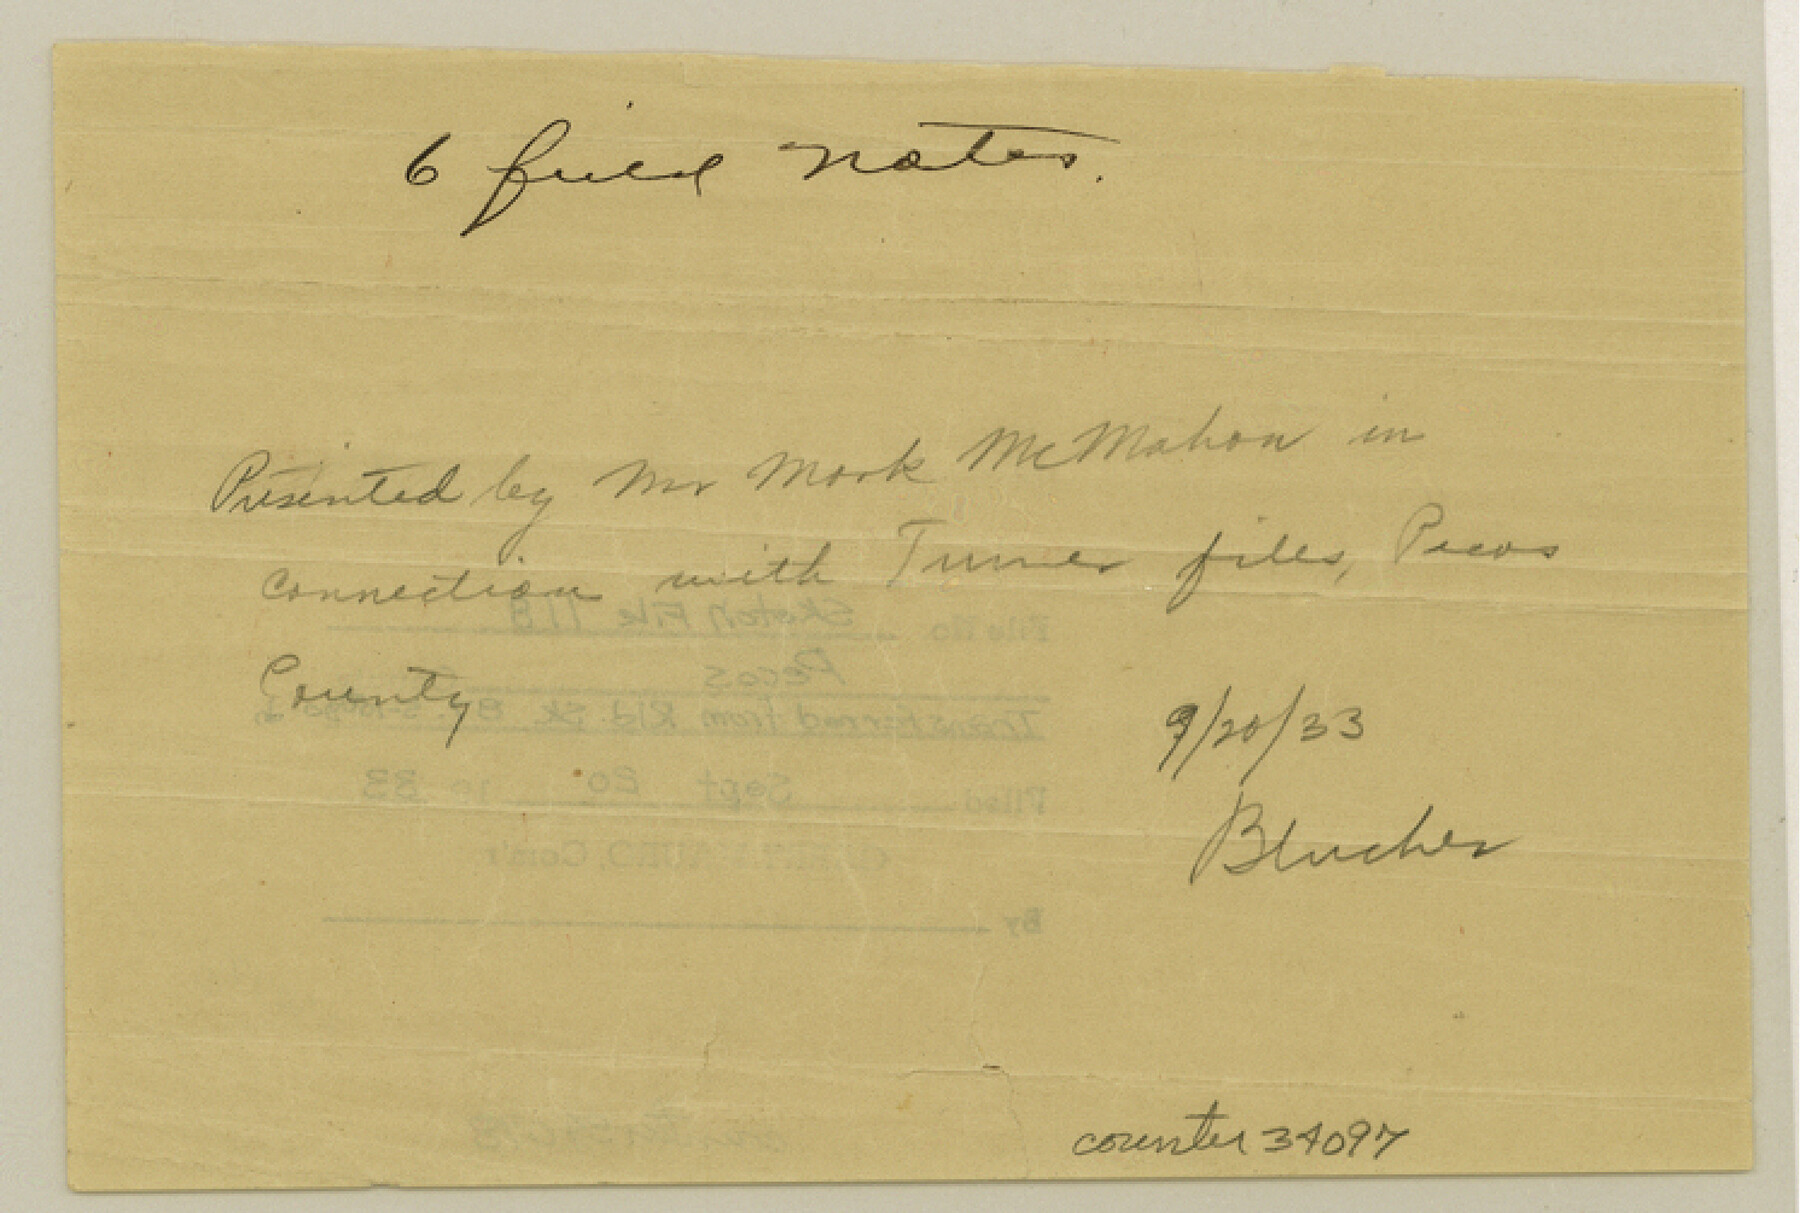 6 field notes.
Presented by Mr Mark McMahon in
connection with Turner files, Pecos
County
9/20/33
Blucher
File No. Sketch File 118
Pecos
Transferred from Rld. Sk.
Filed Sept 20 19 33
Com'r
By
counter 34097